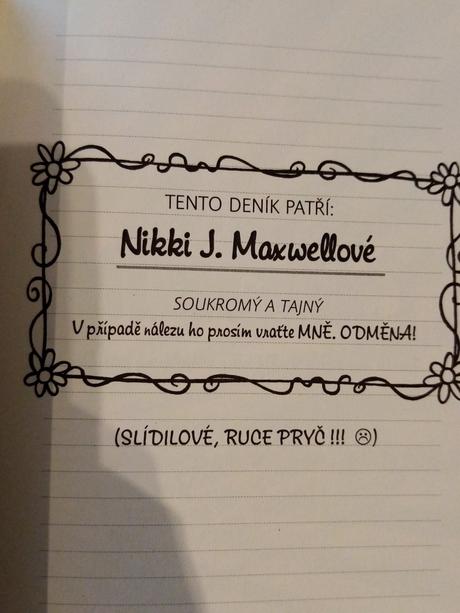 TENTO DENÍK PATŘÍ:
Nikki J. Maxwellové
SOUKROMÝ A TAJNÝ
V případě nálezu ho prosím vraťte MNĚ. ODMĚNA!
(SLÍDILOVÉ, RUCE PRYČ !!! ☹)